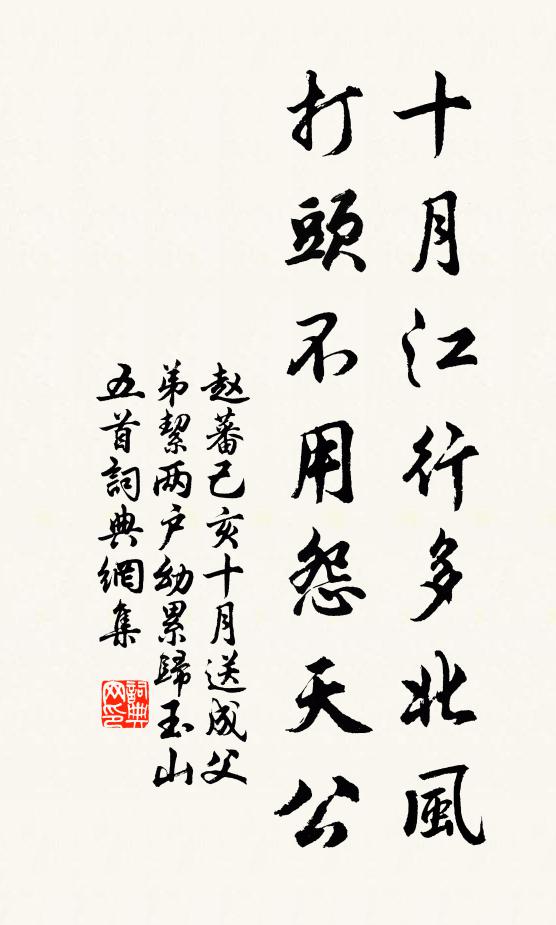 十月江行多北風
打頭不用怨天公
赵蕃己亥十月送成父
弟絜两户幼累歸玉山
五首詞典網集
詞典
网印